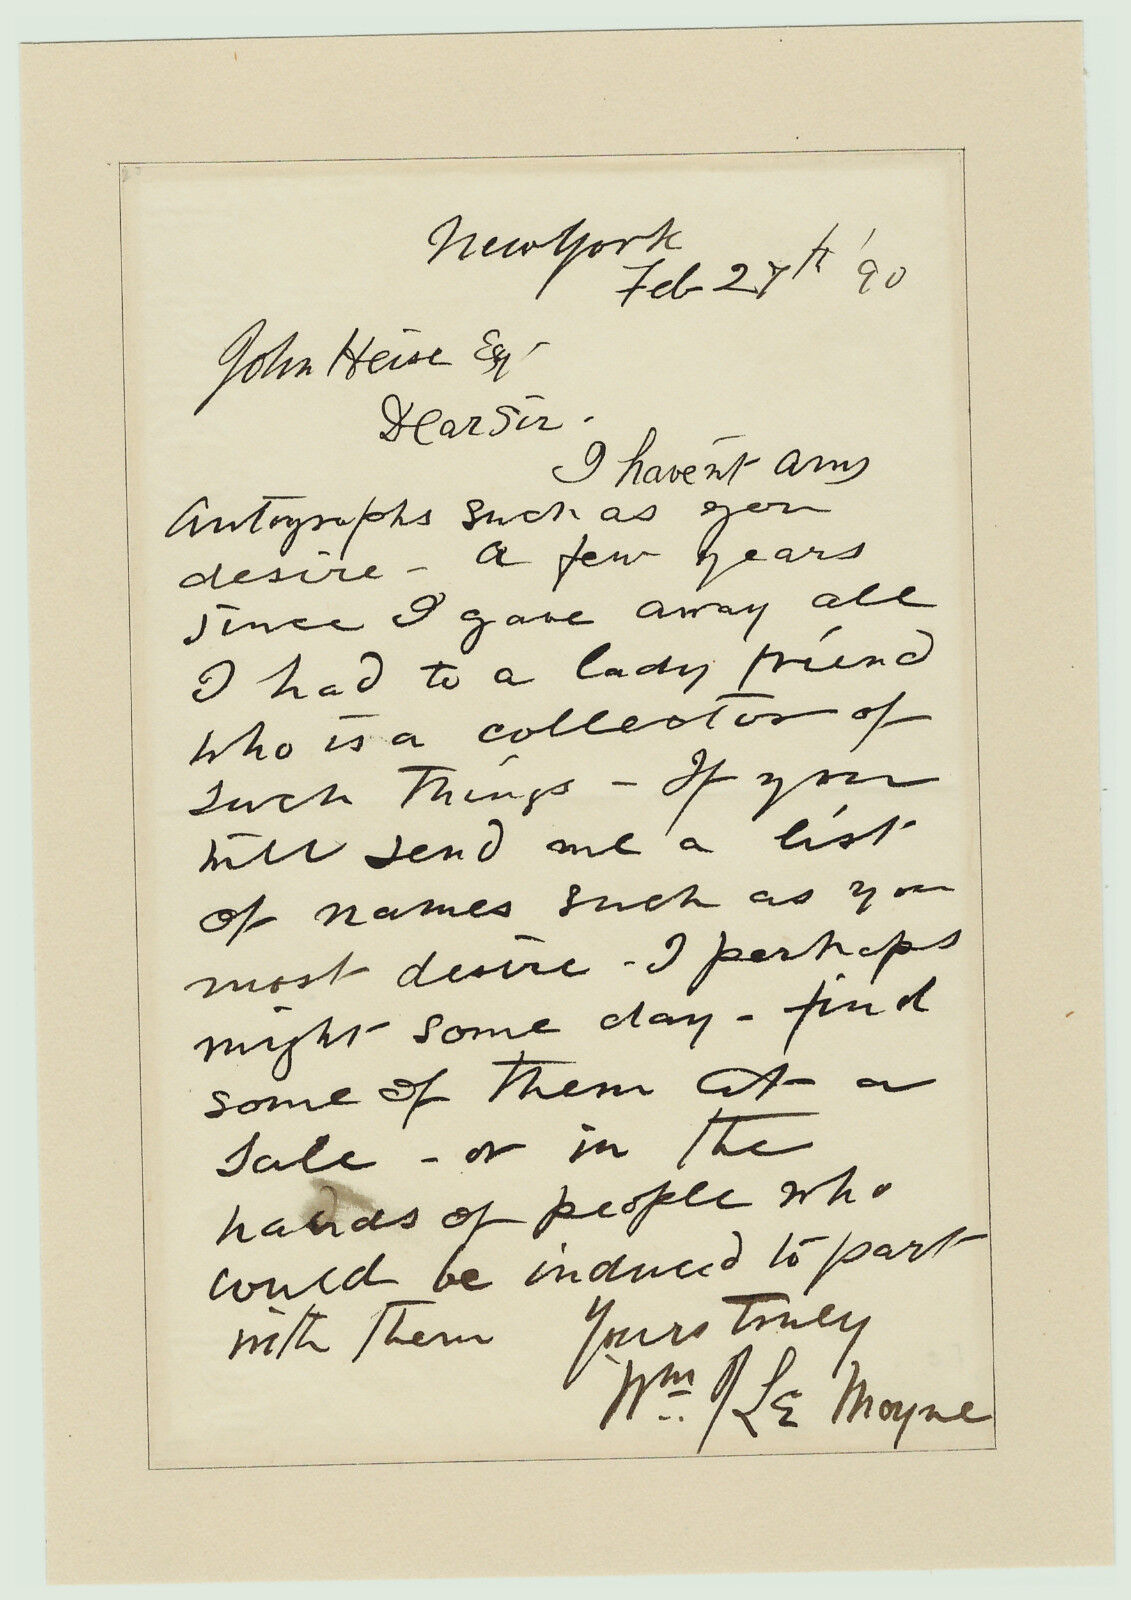 New York
Feb 27th '90
John Heise Esq
Dear Sir.
I haven't any
Autographs such as you
desire - A few years
since I gave away all
I had to a lady friend
who is a collector of
such things - If you
will send me a list
of names such as you
most desire - I perhaps
might some day - find
some of them at a
sale - or in the
hands of people who
could be induced to part
with them Yours truly
Wm J Le Moyne